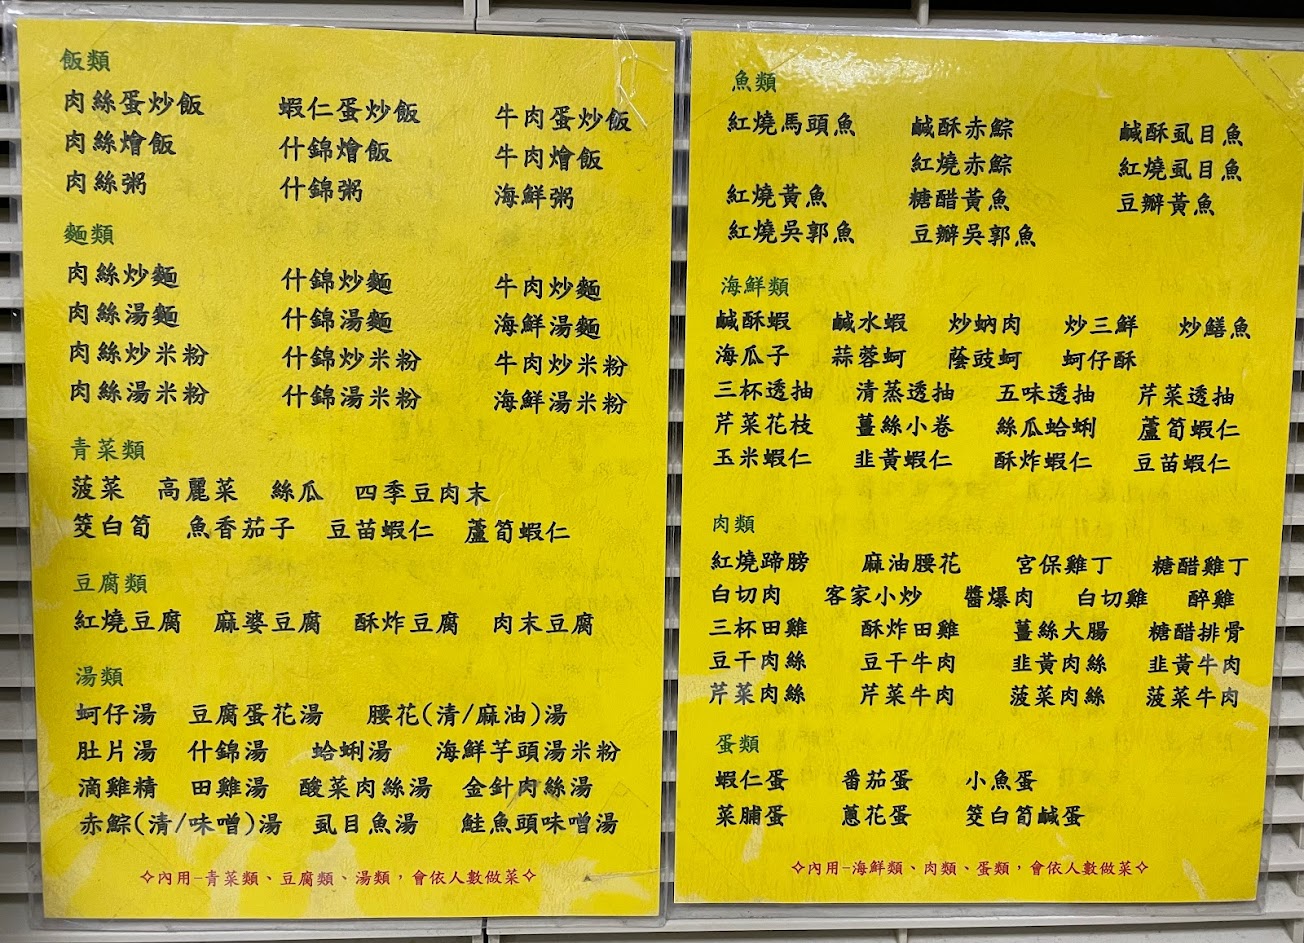 飯類
肉絲蛋炒飯 蝦仁蛋炒飯 牛肉蛋炒飯
肉絲燴飯 什錦燴飯 牛肉燴飯
肉絲粥 什錦粥 海鮮粥
麵類
肉絲炒麵 什錦炒麵 牛肉炒麵
肉絲湯麵 什錦湯麵 海鮮湯麵
肉絲炒米粉 什錦炒米粉 牛肉炒米粉
肉絲湯米粉 什錦湯米粉 海鮮湯米粉
青菜類
菠菜 高麗菜 絲瓜 四季豆肉末
筊白筍 魚香茄子 豆苗蝦仁 蘆筍蝦仁
豆腐類
紅燒豆腐 麻婆豆腐 酥炸豆腐 肉末豆腐
湯類
蚵仔湯 豆腐蛋花湯 腰花(清/麻油)湯
肚片湯 什錦湯 蛤蜊湯 海鮮芋頭湯米粉
滴雞精 田雞湯 酸菜肉絲湯 金針肉絲湯
赤鯮(清/味噌)湯 虱目魚湯 鮭魚頭味噌湯
✧內用-青菜類、豆腐類、湯類，會依人數做菜✧
魚類
紅燒馬頭魚 鹹酥赤鯮 鹹酥虱目魚
紅燒赤鯮 紅燒虱目魚
紅燒黃魚 糖醋黃魚 豆瓣黃魚
紅燒吳郭魚 豆瓣吳郭魚
海鮮類
鹹酥蝦 鹹水蝦 炒蚋肉 炒三鮮 炒鱔魚
海瓜子 蒜蓉蚵 蔭豉蚵 蚵仔酥
三杯透抽 清蒸透抽 五味透抽 芹菜透抽
芹菜花枝 薑絲小卷 絲瓜蛤蜊 蘆筍蝦仁
玉米蝦仁 韭黃蝦仁 酥炸蝦仁 豆苗蝦仁
肉類
紅燒蹄膀 麻油腰花 宮保雞丁 糖醋雞丁
白切肉 客家小炒 醬爆肉 白切雞 醉雞
三杯田雞 酥炸田雞 薑絲大腸 糖醋排骨
豆干肉絲 豆干牛肉 韭黃肉絲 韭黃牛肉
芹菜肉絲 芹菜牛肉 菠菜肉絲 菠菜牛肉
蛋類
蝦仁蛋 番茄蛋 小魚蛋
菜脯蛋 蔥花蛋 筊白筍鹹蛋
✧內用-海鮮類、肉類、蛋類，會依人數做菜✧